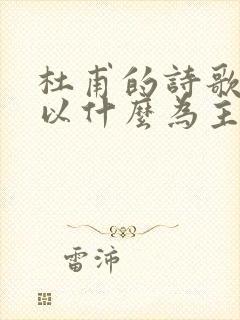 杜甫的詩歌
以什麼為主
雷沛